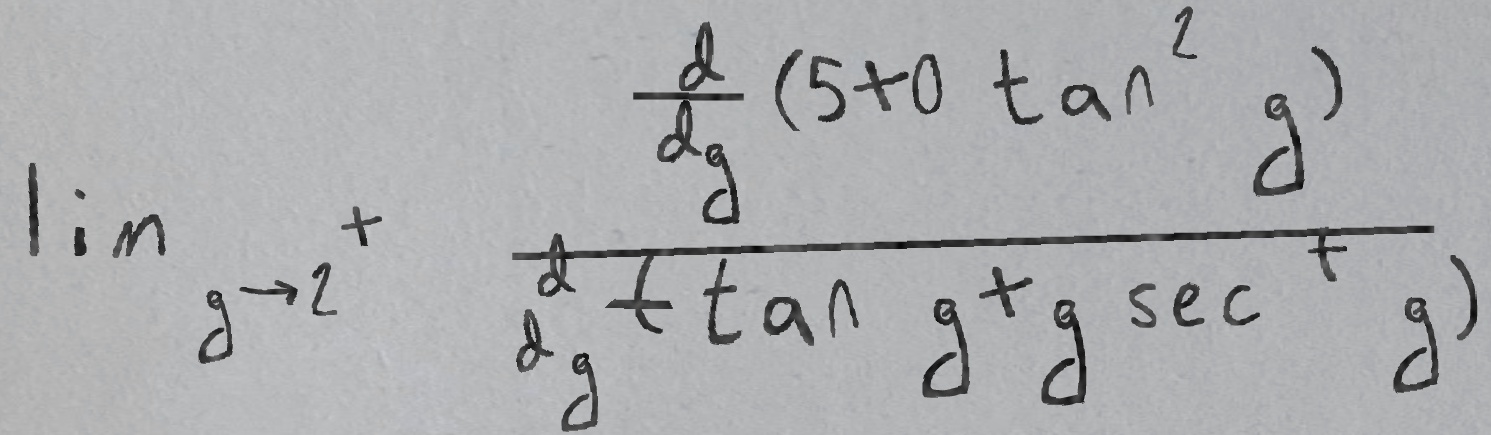 \lim_{g \to 2^+} \frac{\frac{d}{dg}(5+0 \tan^2 g)}{\frac{d}{dg}(-\tan g + g \sec^+ g)}